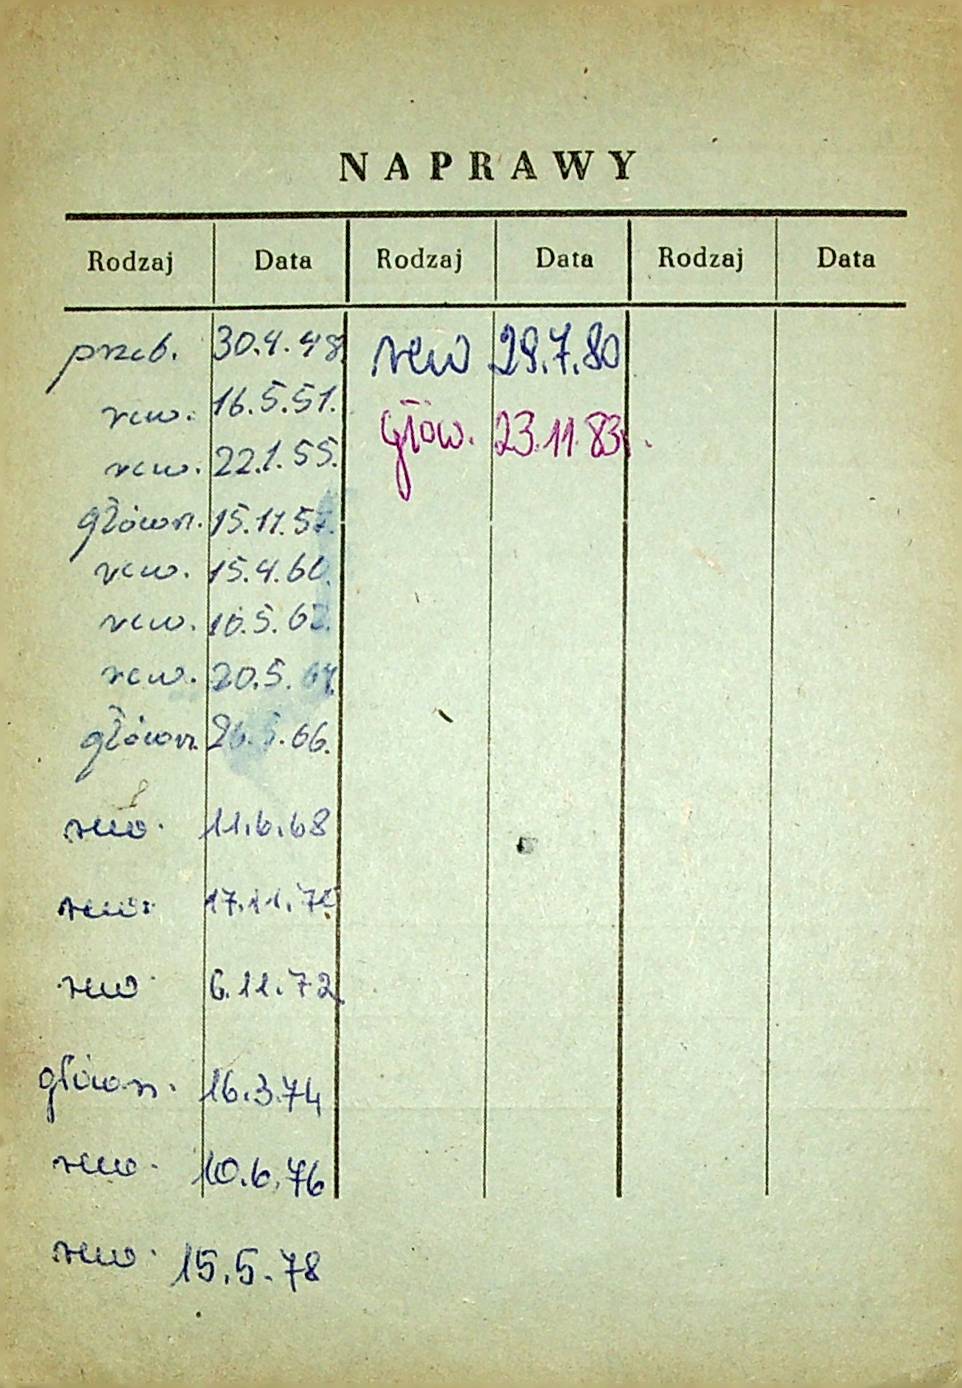 NAPRAWY
Rodzaj Data Rodzaj Data Rodzaj Data
przeb. 30.4.48 rew 29.7.80
rew. 16.5.51. głów. 23.11.83.
rew. 22.1.55.
główn. 15.11.57.
rew. 15.4.60.
rew. 10.5.62.
rew. 20.5.64.
główn. 66.
rew. 11.6.68
rew. 17.11.70
rew 6.11.72
główn. 16.3.74
rew. 10.6.76
rew. 15.5.78